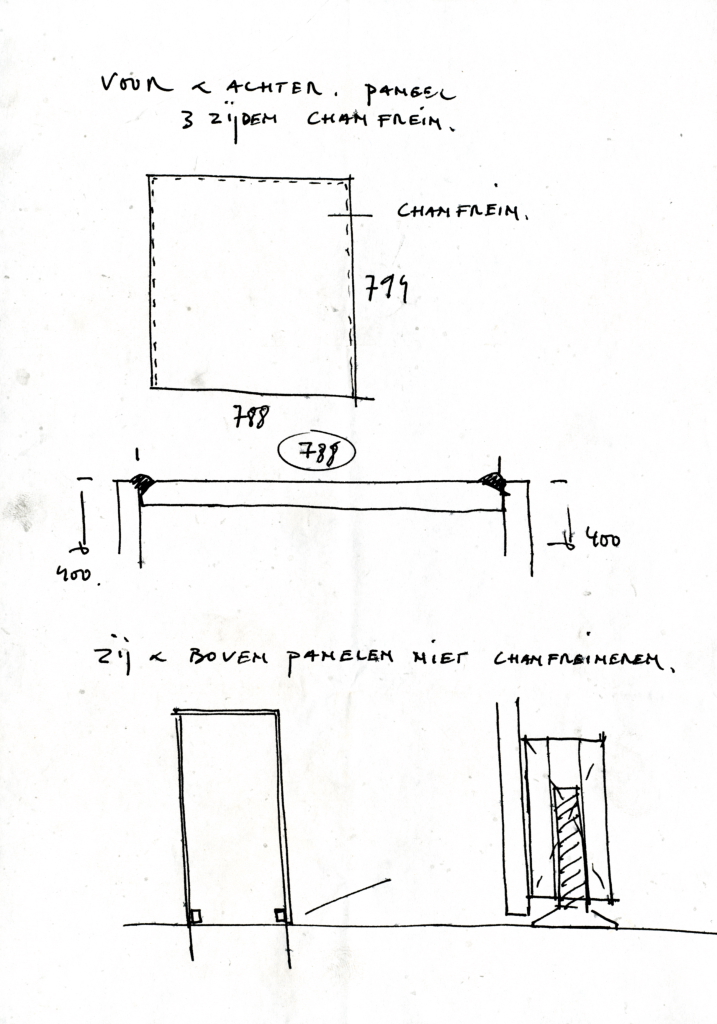 VOOR & ACHTER. PANEEL
3 ZIJDEN CHANFREIN.
CHANFREIN.
794
788
788
400.
400
ZIJ & BOVEN PANELEN NIET CHANFREINEREN.